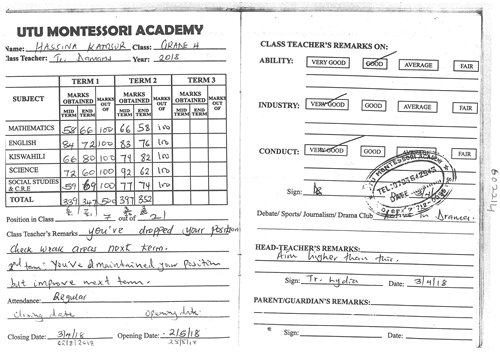 UTU MONTESSORI ACADEMY
Name: HASSINA KATISUR Class: GRADE 4
Class Teacher: Tr. Damaris Year: 2018
TERM 1 TERM 2 TERM 3
SUBJECT MARKS OBTAINED MARKS OUT OF MARKS OBTAINED MARKS OUT OF MARKS OBTAINED MARKS OUT OF
MID TERM END TERM MID TERM END TERM MID TERM END TERM
MATHEMATICS 58 66 100 66 58 100
ENGLISH 84 72 100 83 76 100
KISWAHILI 66 80 100 79 82 100
SCIENCE 72 60 100 92 62 100
SOCIAL STUDIES & C.R.E 59 69 100 77 74 100
TOTAL 339 347 500 397 352
Position in Class 7 out of 21
Class Teacher's Remarks you've dropped your position
Check weak areas next term.
2nd term: You've maintained your position
but improve next term.
Attendance: Regular
closing date opening date:
Closing Date: 3/4/18 Opening Date: 2/5/18
02/8/2018
CLASS TEACHER'S REMARKS ON:
ABILITY: VERY GOOD GOOD AVERAGE FAIR
INDUSTRY: VERY GOOD GOOD AVERAGE FAIR
CONDUCT: VERY GOOD GOOD AVERAGE FAIR
UTU MONTESSORI
DATE
Sign:
Debate/ Sports/ Journalism/ Drama Club Active in Drama.
HEAD-TEACHER'S REMARKS:
Aim higher than this.
Sign: Tr. Lydia Date: 3/4/18
PARENT/GUARDIAN'S REMARKS:
Sign: Date: